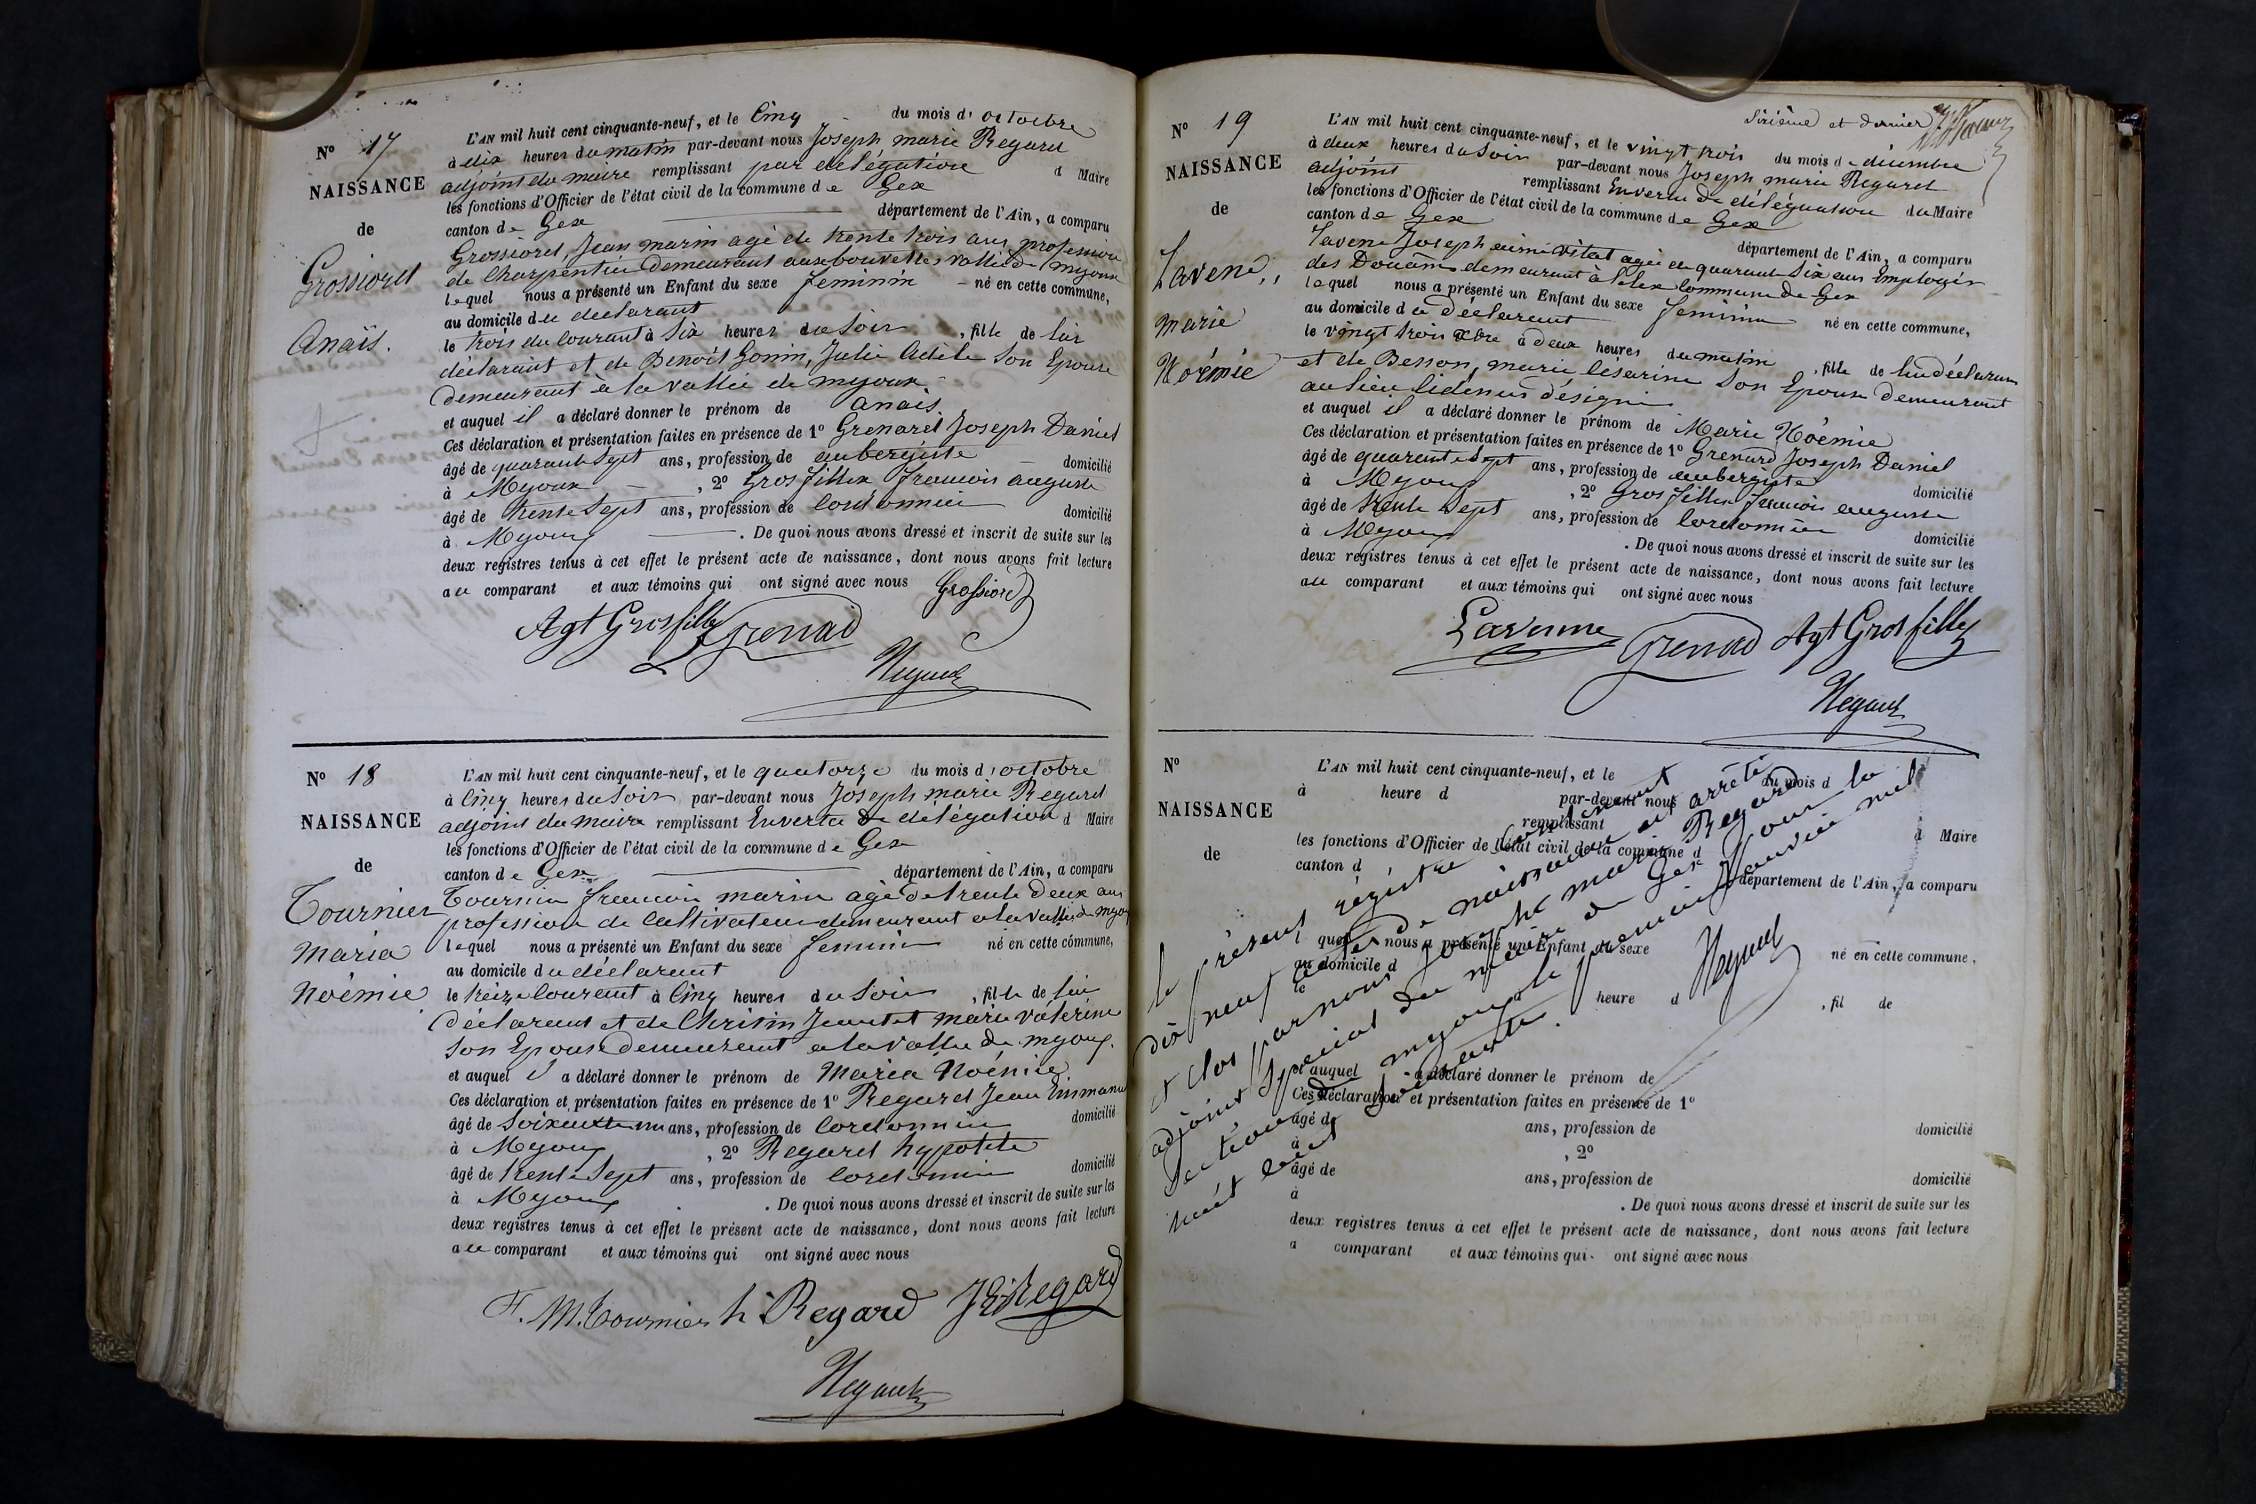 N° 17
NAISSANCE
de
Grossiord
Anaïs.
L'AN mil huit cent cinquante-neuf, et le Cinq du mois d'octobre
à dix heures du matin par-devant nous Joseph marie Regard
adjoint du maire remplissant par délégation d Maire
les fonctions d'Officier de l'état civil de la commune de Gex
canton de Gex département de l'Ain, a comparu
Grossiord, Jean marin agé de trente trois ans, profession
de Charpentier Demeurant aux bouvettes vallée de myoux
lequel nous a présenté un Enfant du sexe feminin né en cette commune,
au domicile du déclarant
le trois du Courant à Six heures du Soir, fille de lui
déclarant et de Benoit Gonin, Julie Adèle Son Epouse
demeurant à la vallée de myoux
et auquel il a déclaré donner le prénom de anais
Ces déclaration et présentation faites en présence de 1° Grenard Joseph Daniel
âgé de quarante Sept ans, profession de aubergiste domicilié
à Myoux, 2° Grosfillex francois auguste
âgé de trente Sept ans, profession de Cordonnier domicilié
à Myoux. De quoi nous avons dressé et inscrit de suite sur les
deux registres tenus à cet effet le présent acte de naissance, dont nous avons fait lecture
au comparant et aux témoins qui ont signé avec nous Grossiord
Agt Grosfillex Grenad
Regard
N° 18
NAISSANCE
de
Tournier
Maria
Noémie
L'AN mil huit cent cinquante-neuf, et le quatorze du mois d'octobre
à Cinq heures du Soir par-devant nous Joseph marie Regard
adjoint du maire remplissant Envertu de délégation d Maire
les fonctions d'Officier de l'état civil de la commune de Gex
canton de Gex département de l'Ain, a comparu
Tournier francois marin agé de trente deux ans
profession de Cultivateur demeurant a la vallée de myoux
lequel nous a présenté un Enfant du sexe feminin né en cette commune,
au domicile du déclarant
le treize Courant à Cinq heures du Soir, fille de lui
déclarant et de Christin Jeantet marie
Son Epouse demeurant a la vallée de myoux.
et auquel il a déclaré donner le prénom de Maria Noémie
Ces déclaration et présentation faites en présence de 1° Regard Jean Emmanuel
âgé de Soixante un ans, profession de Cordonnier domicilié
à Myoux, 2° Regard hypolite
âgé de trente Sept ans, profession de Cordonnier domicilié
à Myoux. De quoi nous avons dressé et inscrit de suite sur les
deux registres tenus à cet effet le présent acte de naissance, dont nous avons fait lecture
au comparant et aux témoins qui ont signé avec nous
F. M. Tournier h Regard JE Regard
Regard
Sixième et dernier
N° 19
NAISSANCE
de
Lavene,
marie
Noémie
L'AN mil huit cent cinquante-neuf, et le vingt trois du mois de décembre
à deux heures du Soir par-devant nous Joseph marie Regard
adjoint remplissant Envertu de délégation du Maire
les fonctions d'Officier de l'état civil de la commune de Gex
canton de Gex département de l'Ain, a comparu
Lavene Joseph aimé vital agé de quarante Six ans Employé
des Douanes demeurant à Commune de Gex
lequel nous a présenté un Enfant du sexe feminin né en cette commune,
au domicile du déclarant
le vingt trois Xbre à deux heures du matin, fille de lui déclarant
et de Besson, marie Césarine Son Epouse demeurant
au lieu Cidessus désigné
et auquel il a déclaré donner le prénom de Marie Noémie
Ces déclaration et présentation faites en présence de 1° Grenard Joseph Daniel
âgé de quarante Sept ans, profession de aubergiste domicilié
à Myoux, 2° Grosfillex francois auguste
âgé de trente Sept ans, profession de Cordonnier domicilié
à Myoux. De quoi nous avons dressé et inscrit de suite sur les
deux registres tenus à cet effet le présent acte de naissance, dont nous avons fait lecture
au comparant et aux témoins qui ont signé avec nous
Lavenne Grenad Agt Grosfillex
Regard
N°
NAISSANCE
de
L'AN mil huit cent cinquante-neuf, et le du mois d
à heure d par-devant nous
remplissant d Maire
les fonctions d'Officier de l'état civil de la commune d
canton d département de l'Ain, a comparu
l quel nous a présenté un Enfant du sexe né en cette commune,
au domicile d
le heure d, fil de
et auquel a déclaré donner le prénom de
Ces déclaration et présentation faites en présence de 1°
âgé de ans, profession de domicilié
à, 2°
âgé de ans, profession de domicilié
à. De quoi nous avons dressé et inscrit de suite sur les
deux registres tenus à cet effet le présent acte de naissance, dont nous avons fait lecture
a comparant et aux témoins qui ont signé avec nous
le présent régistre Contenant
dix neuf actes de naissance est arrêté
et Clos par nous Joseph marie Regard
adjoint Spécial du maire de Gex pour la
Section de myoux le premier Janvier mil
huit Cent Soixante.
Regard